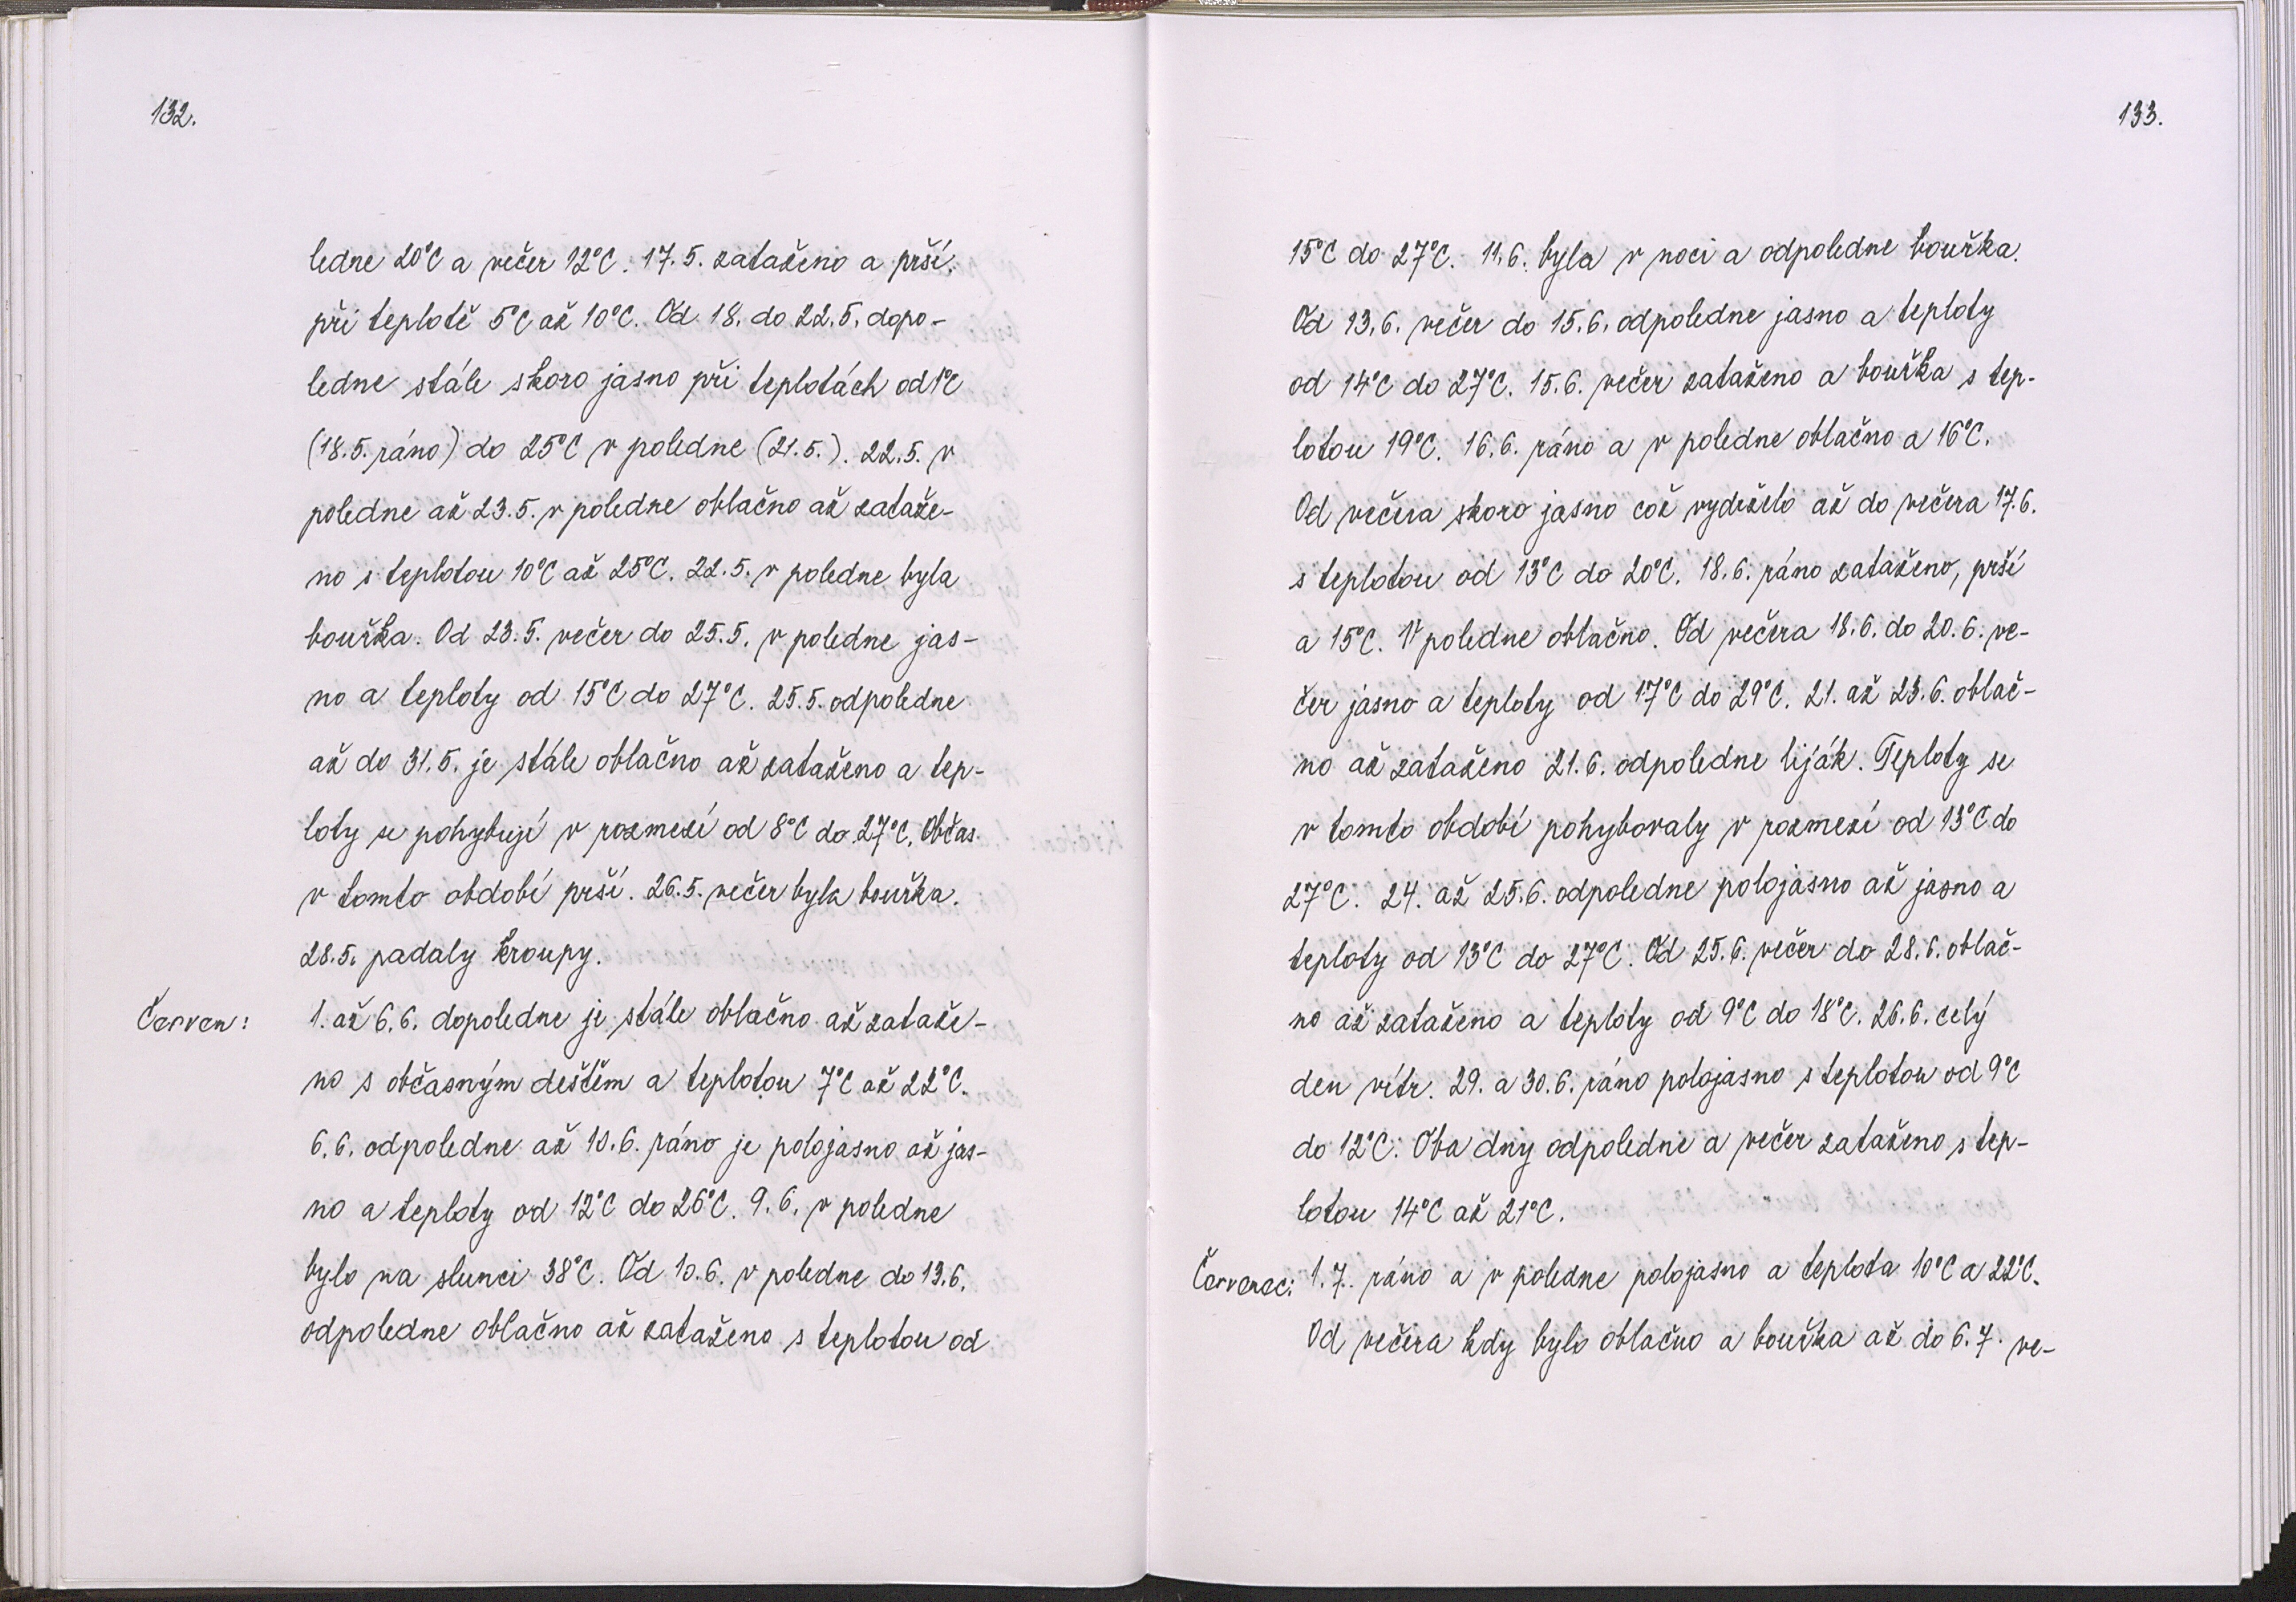 132.
ledne 20°C a večer 12°C. 17.5. zataženo a prší.
při teplotě 5°C až 10°C. Od 18. do 22.5. dopo-
ledne stále skoro jasno při teplotách od 1°C
(18.5. ráno) do 25°C v poledne (21.5.). 22.5. v
poledne až 23.5. v poledne oblačno až zataže-
no s teplotou 10°C až 25°C. 22.5. v poledne byla
bouřka. Od 23.5. večer do 25.5. v poledne jas-
no a teploty od 15°C do 27°C. 25.5. odpoledne
až do 31.5. je stále oblačno až zataženo a tep-
loty se pohybují v rozmezí od 8°C do 27°C. Občas
v tomto období prší. 26.5. večer byla bouřka.
28.5. padaly kroupy.
Červen: 1. až 6.6. dopoledne je stále oblačno až zataže-
no s občasným deštěm a teplotou 7°C až 22°C.
6.6. odpoledne až 10.6. ráno je polojasno až jas-
no a teploty od 12°C do 26°C. 9.6. v poledne
bylo na slunci 38°C. Od 10.6. v poledne do 13.6.
odpoledne oblačno až zataženo s teplotou od
133.
15°C do 27°C. 11.6. byla v noci a odpoledne bouřka.
Od 13.6. večer do 15.6. odpoledne jasno a teploty
od 14°C do 27°C. 15.6. večer zataženo a bouřka s tep-
lotou 19°C. 16.6. ráno a v poledne oblačno a 16°C.
Od večera skoro jasno což vydrželo až do večera 17.6.
s teplotou od 13°C do 20°C. 18.6. ráno zataženo, prší
a 15°C. V poledne oblačno. Od večera 18.6. do 20.6. ve-
čer jasno a teploty od 17°C do 29°C. 21. až 23.6. oblač-
no až zataženo 21.6. odpoledne liják. Teploty se
v tomto období pohybovaly v rozmezí od 13°C do
27°C. 24. až 25.6. odpoledne polojasno až jasno a
teploty od 13°C do 27°C. Od 25.6. večer do 28.6. oblač-
no až zataženo a teploty od 9°C do 18°C. 26.6. celý
den vítr. 29. a 30.6. ráno polojasno s teplotou od 9°C
do 12°C. Oba dny odpoledne a večer zataženo s tep-
lotou 14°C až 21°C.
Červenec: 1.7. ráno a v poledne polojasno a teplota 10°C a 22°C.
Od večera kdy bylo oblačno a bouřka až do 6.7. ve-